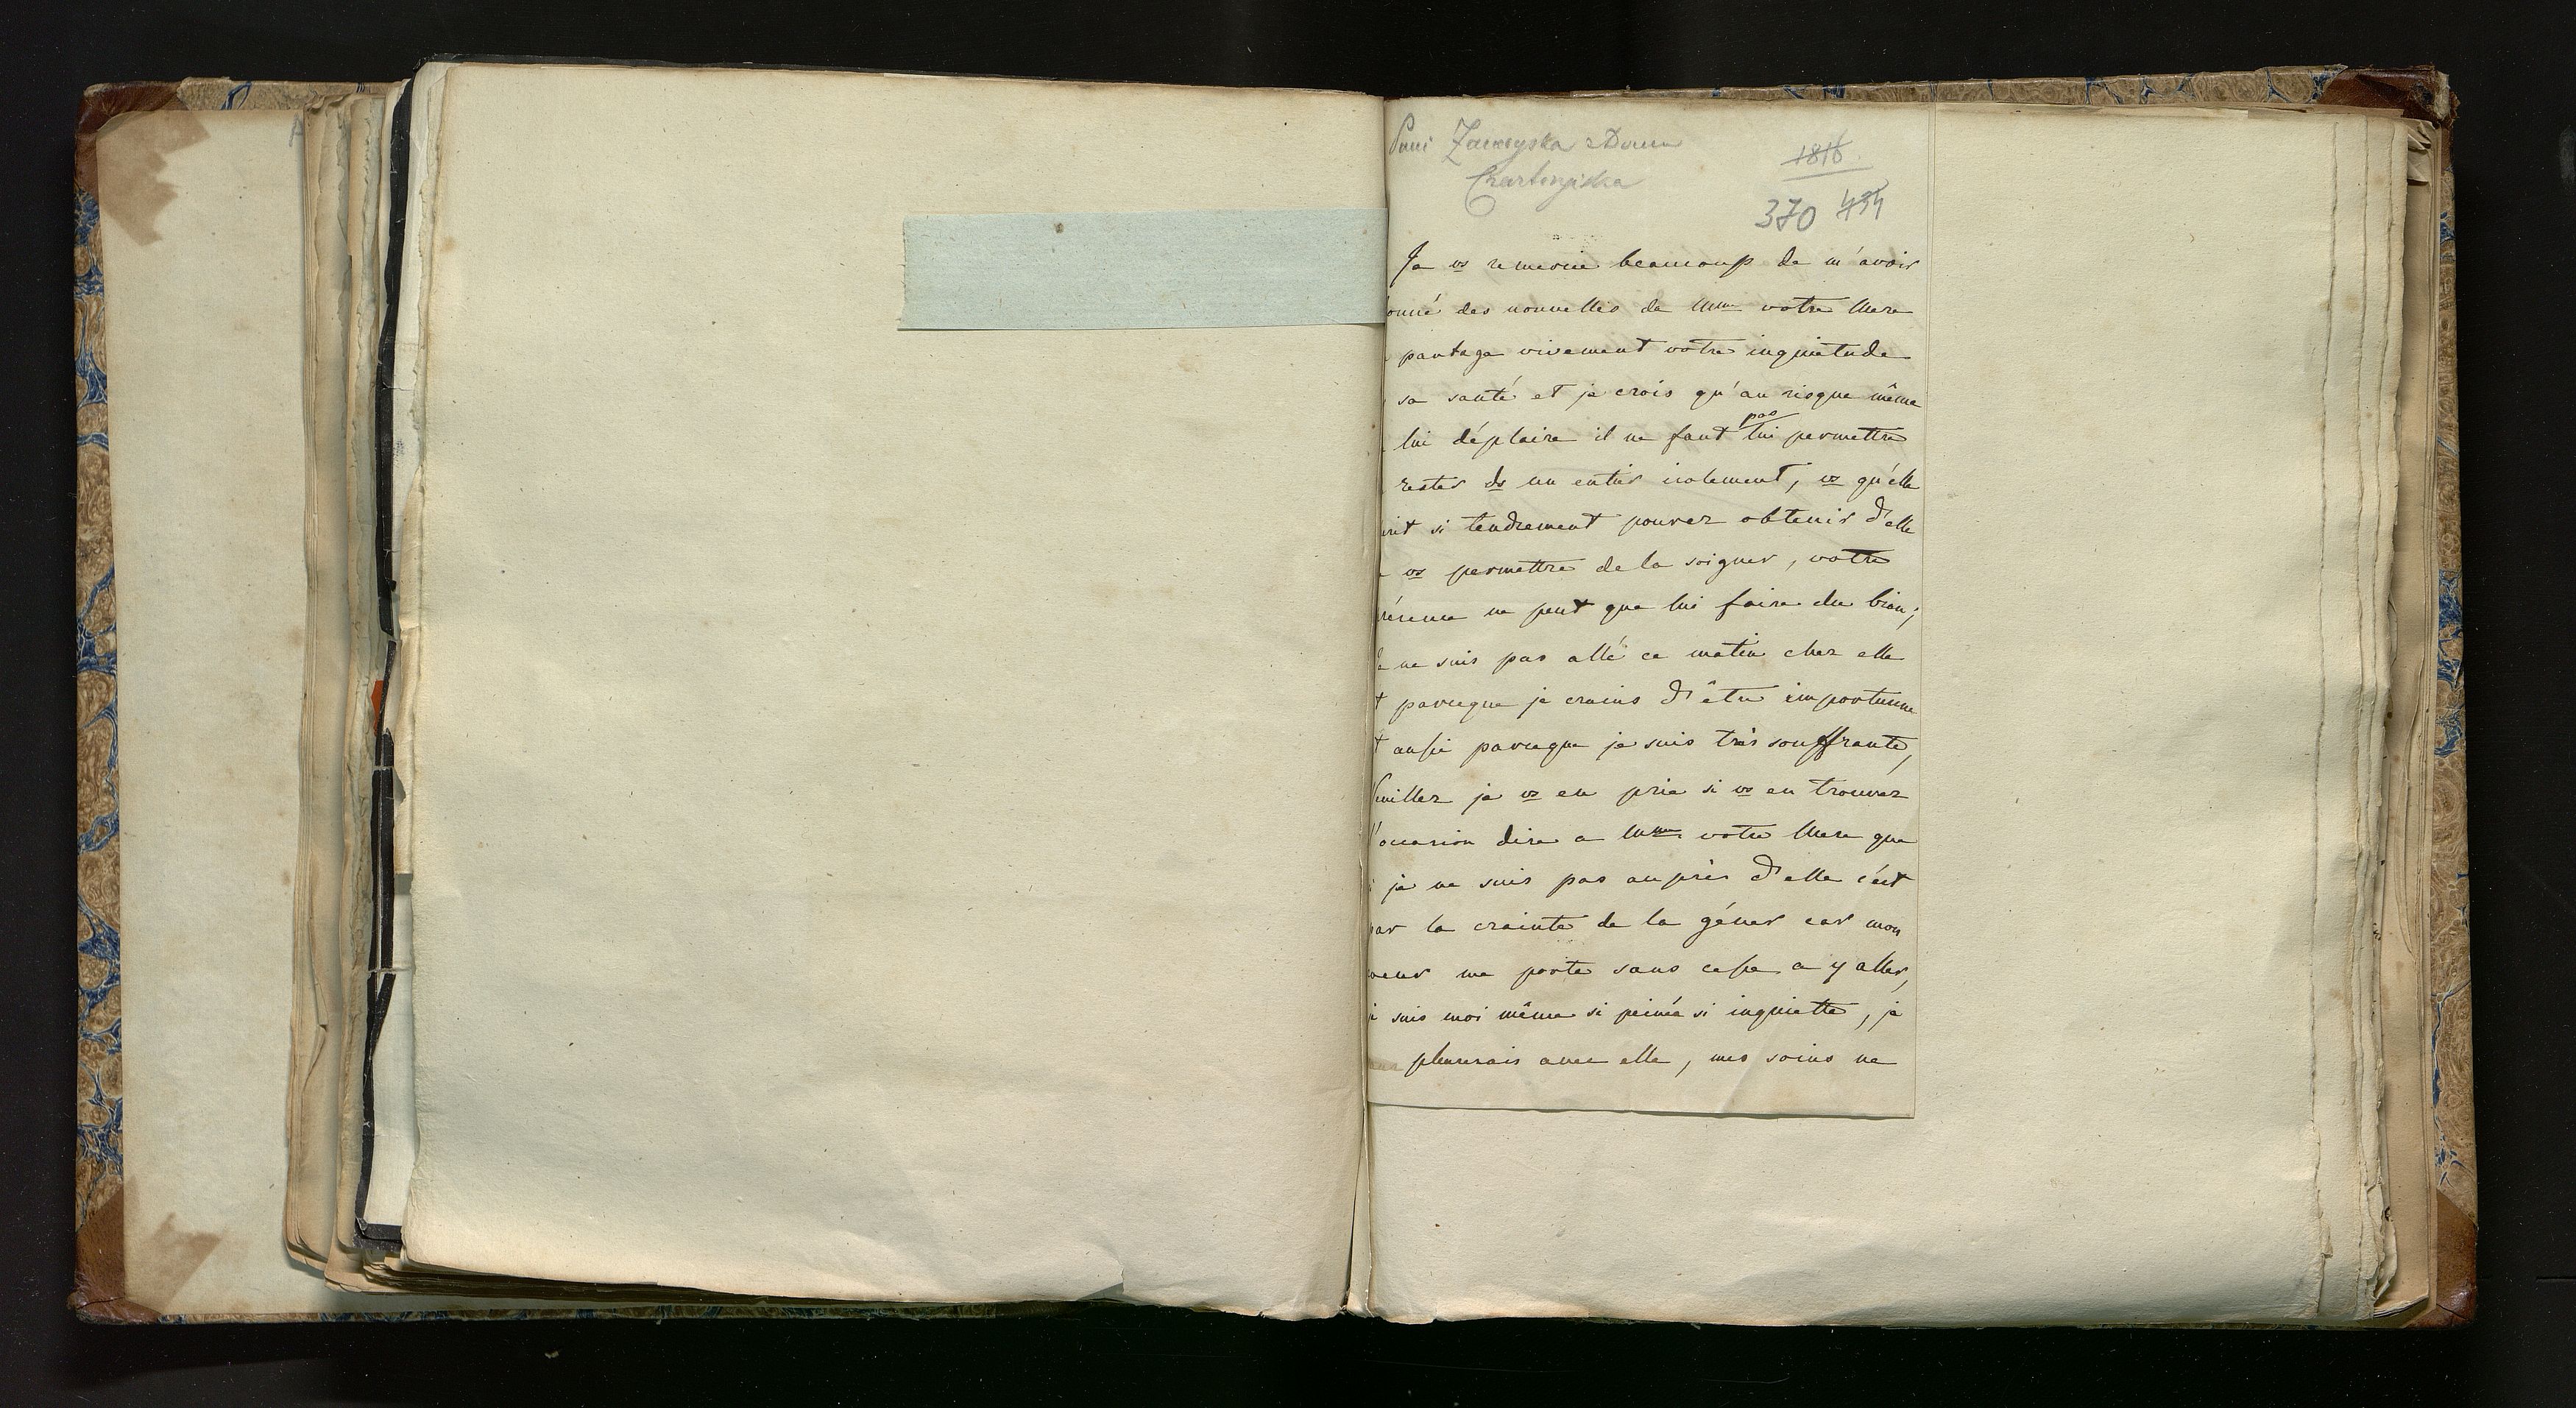 Pani Zamoyska z Domu
Czartoryska
1816
370 434
Je vs remercie beaucoup de m'avoir
onné des nouvelles de Mme votre Mere
partage vivement votre inquietude
sa santé et je crois qu'au risque même
lui déplaire il ne faut pas lui permettre
rester ds un entier isolement, vs qu'elle
érit si tendrement pouvez obtenir d'elle
vs permettre de la soigner, votre
résence ne peut que lui faire du bien;
Je ne suis pas allé ce matin chez elle
t parceque je crains d'être importune
t aussi parceque je suis très souffrante,
Veuillez je vs en prie si vs en trouvez
l'occasion dire a Mme votre Mere que
je ne suis pas auprès d'elle c'est
par la crainte de la géner car mon
coeur me porte sans cesse a y aller,
je suis moi même si peiné si inquiette, je
pleurerais avec elle, mes soins ne